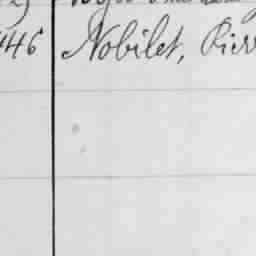 446 Nobilet, Pierr